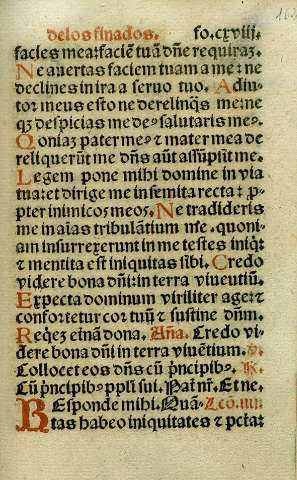 delos finados. fo.cxviij.
facies mea: faciẽ tuã dñe requirã.
Ne auertas faciem tuam a me: ne
declines in ira a seruo tuo. Adiu-
tor meus esto ne derelinq̃s me: ne
qꝫ despicias me de⁹ salutaris me⁹.
Qoniaꝫ pater me⁹ ⁊ mater mea de
reliquerũt me dñs aũt assũpsit me.
Legem pone mihi domine in via
tua: et dirige me in semita recta: ꝓ-
pter inimicos meos. Ne tradideris
me in aĩas tribulãtium me. quoni-
am insurrexerunt in me testes iniq̃:
⁊ mentita est iniquitas sibi. Credo
videre bona dñi: in terra viuentiũ.
Expecta dominum viriliter age: ⁊
confortetur cor tuũ ⁊ sustine dñm.
Reqẽꝫ eternã dona. Aña. Credo vi-
dere bona dñi in terra viuẽtium. ℣.
Collocet eos dñs cũ p̃ncipib⁹. ℟.
Cũ p̃ncipib⁹ ppl̃i sui. Pat̃ nr̃. Et ne.
Responde mihi. Quã- Lcõ. iiij.
tas habeo iniquitates ⁊ pctã: